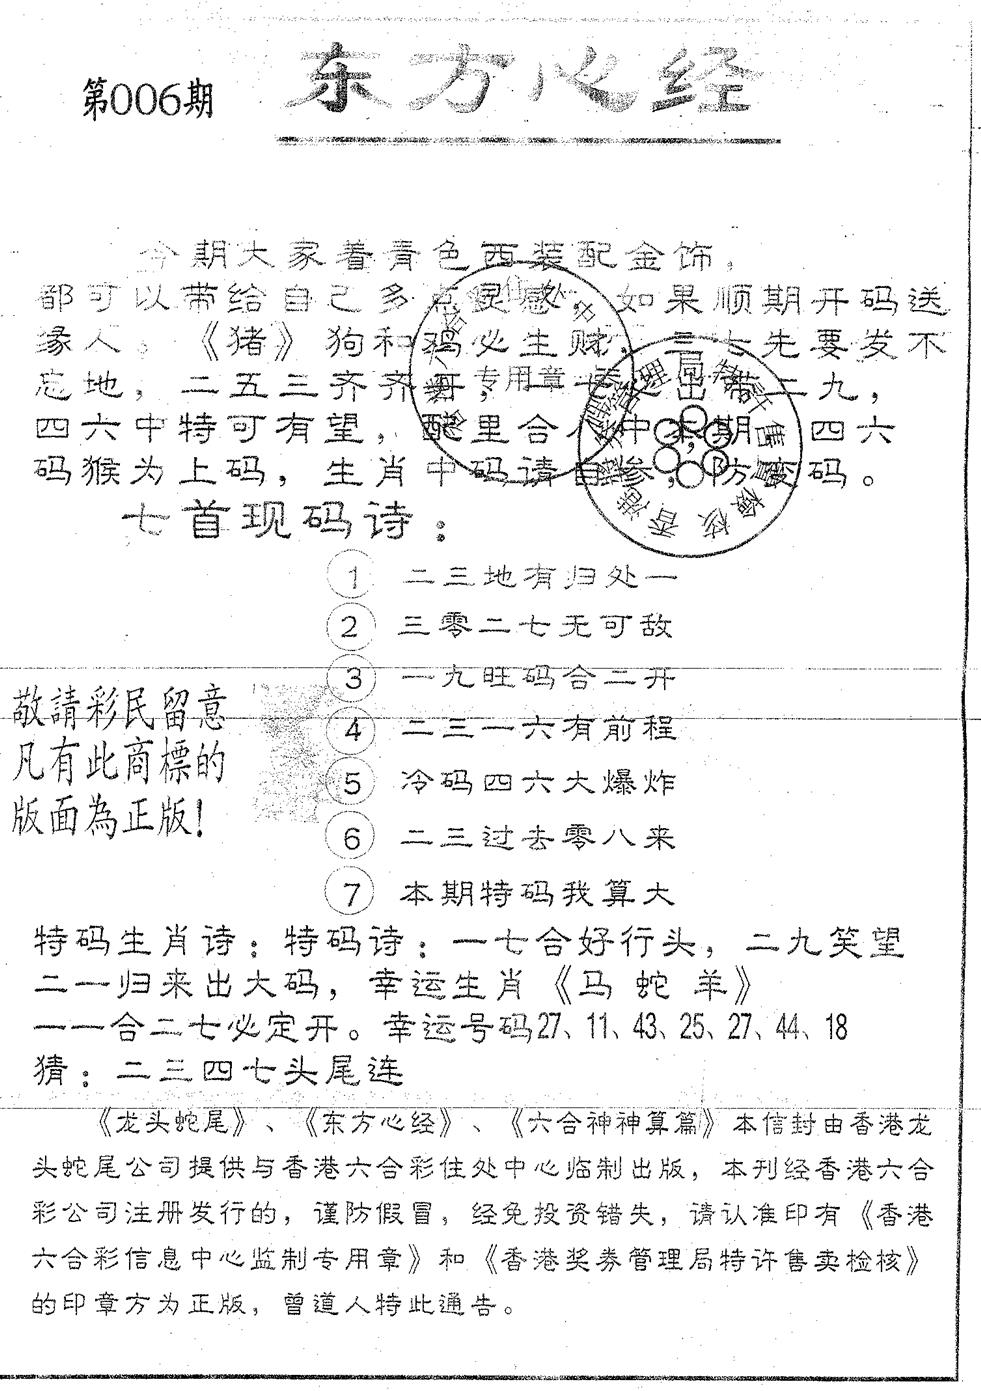 第006期
东方心经
今期大家着青色西装配金饰，
都可以带给自己多点灵感，如果顺期开码送
缘人，《猪》狗和鸡必生财，三七先要发不
忘地，二五三齐齐开，一七之出带二九，
四六中特可有望，醜里合八中本期，四六
码猴为上码，生肖中码请自参，防杀码。
专用章
香港奖券管理局特許售賣檢核
七首现码诗：
1 二三地有归处一
2 三零二七无可敌
3 一九旺码合二开
4 二三一六有前程
5 冷码四六大爆炸
6 二三过去零八来
7 本期特码我算大
敬請彩民留意
凡有此商標的
版面為正版！
特码生肖诗：特码诗：一七合好行头，二九笑望
二一归来出大码，幸运生肖《马 蛇 羊》
一一合二七必定开。幸运号码27、11、43、25、27、44、18
猜：二三四七头尾连
《龙头蛇尾》、《东方心经》、《六合神神算篇》本信封由香港龙
头蛇尾公司提供与香港六合彩住处中心临制出版，本刊经香港六合
彩公司注册发行的，谨防假冒，经免投资错失，请认准印有《香港
六合彩信息中心监制专用章》和《香港奖券管理局特许售卖检核》
的印章方为正版，曾道人特此通告。